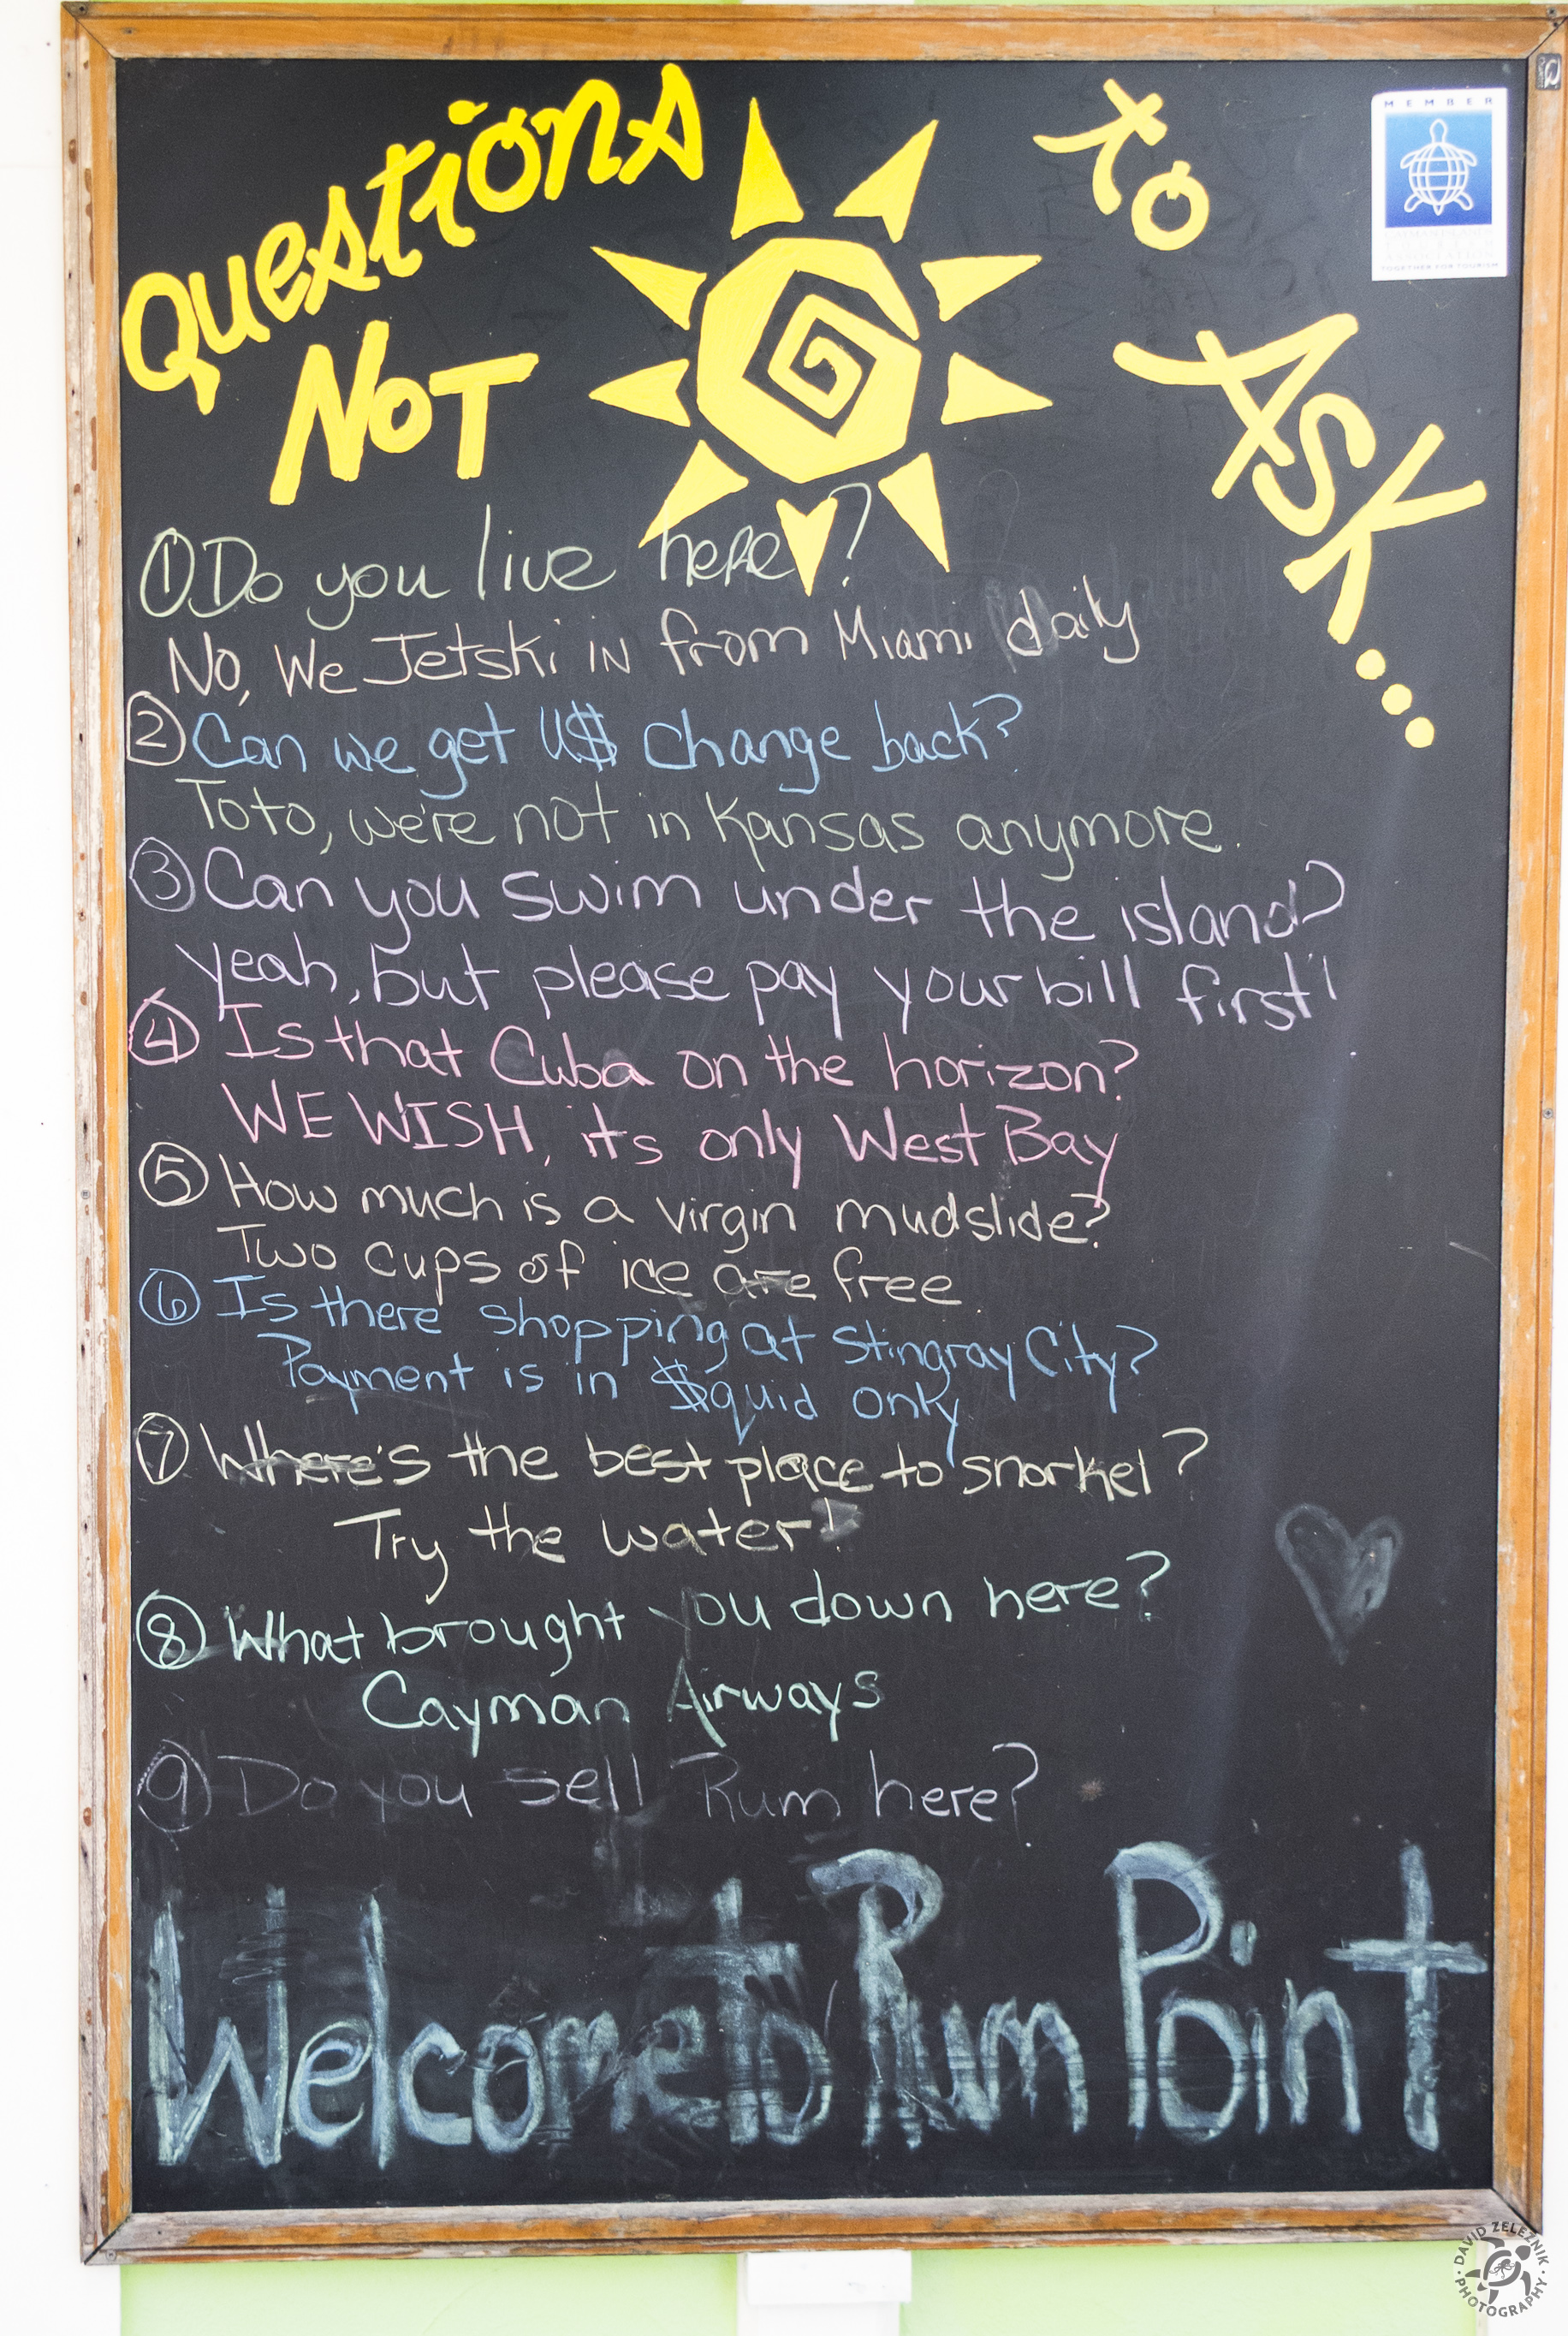 Questions
Not
to
Ask...
MEMBER
TOGETHER FOR TOURISM
① Do you live here?
No, We Jetski in from Miami daily
② Can we get U$ change back?
Toto, we're not in Kansas anymore.
③ Can you swim under the island?
yeah, but please pay your bill first!
④ Is that Cuba on the horizon?
WE WISH, its only West Bay
⑤ How much is a virgin mudslide?
Two cups of ice are free
⑥ Is there shopping at Stingray City?
Payment is in $quid only
⑦ Where's the best place to snorkel?
Try the water!
⑧ What brought you down here?
Cayman Airways
⑨ Do you sell Rum here?
Welcome to Rum Point
DAVID ZELEZNIK
PHOTOGRAPHY